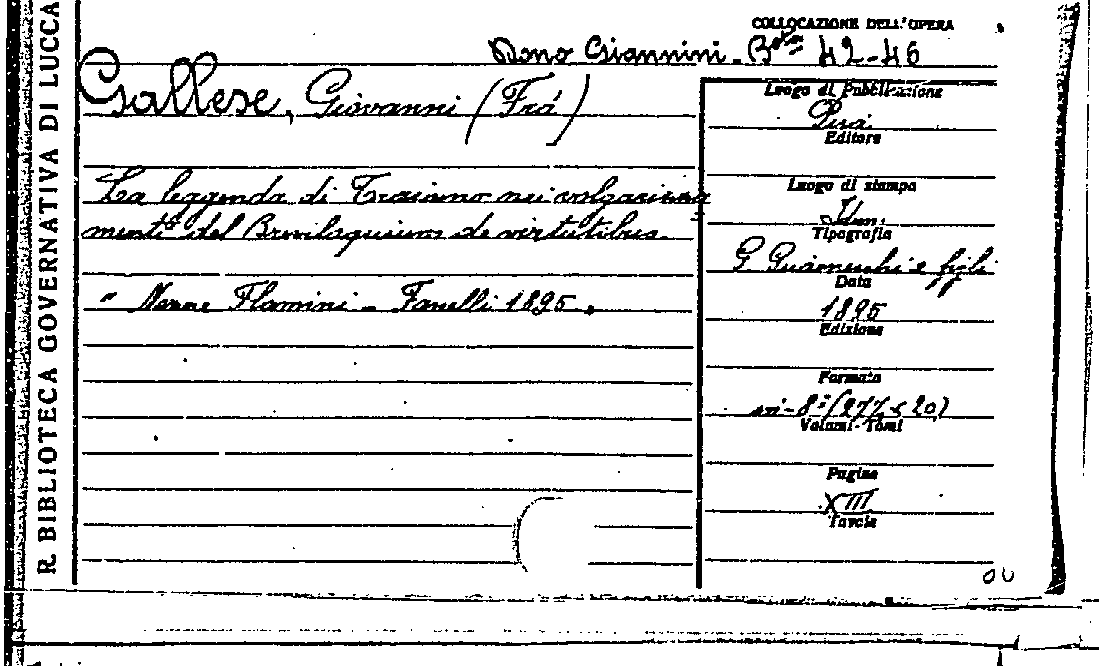 R. BIBLIOTECA GOVERNATIVA DI LUCCA
COLLOCAZIONE DELL'OPERA
Dono Giannini. B.ta 42-46
Gallese, Giovanni (Frà)
La leggenda di Traiano nei volgarizza
menti del Breviloquium de virtutibus.
" Nozze Flamini - Fanelli 1895 "
Luogo di Pubblicazione
Pisa
Editore
Luogo di stampa
Idem.
Tipografia
Data
1895
Edizione
Formato
in-8°
Volumi-Tomi
Pagine
XIII
Tavole